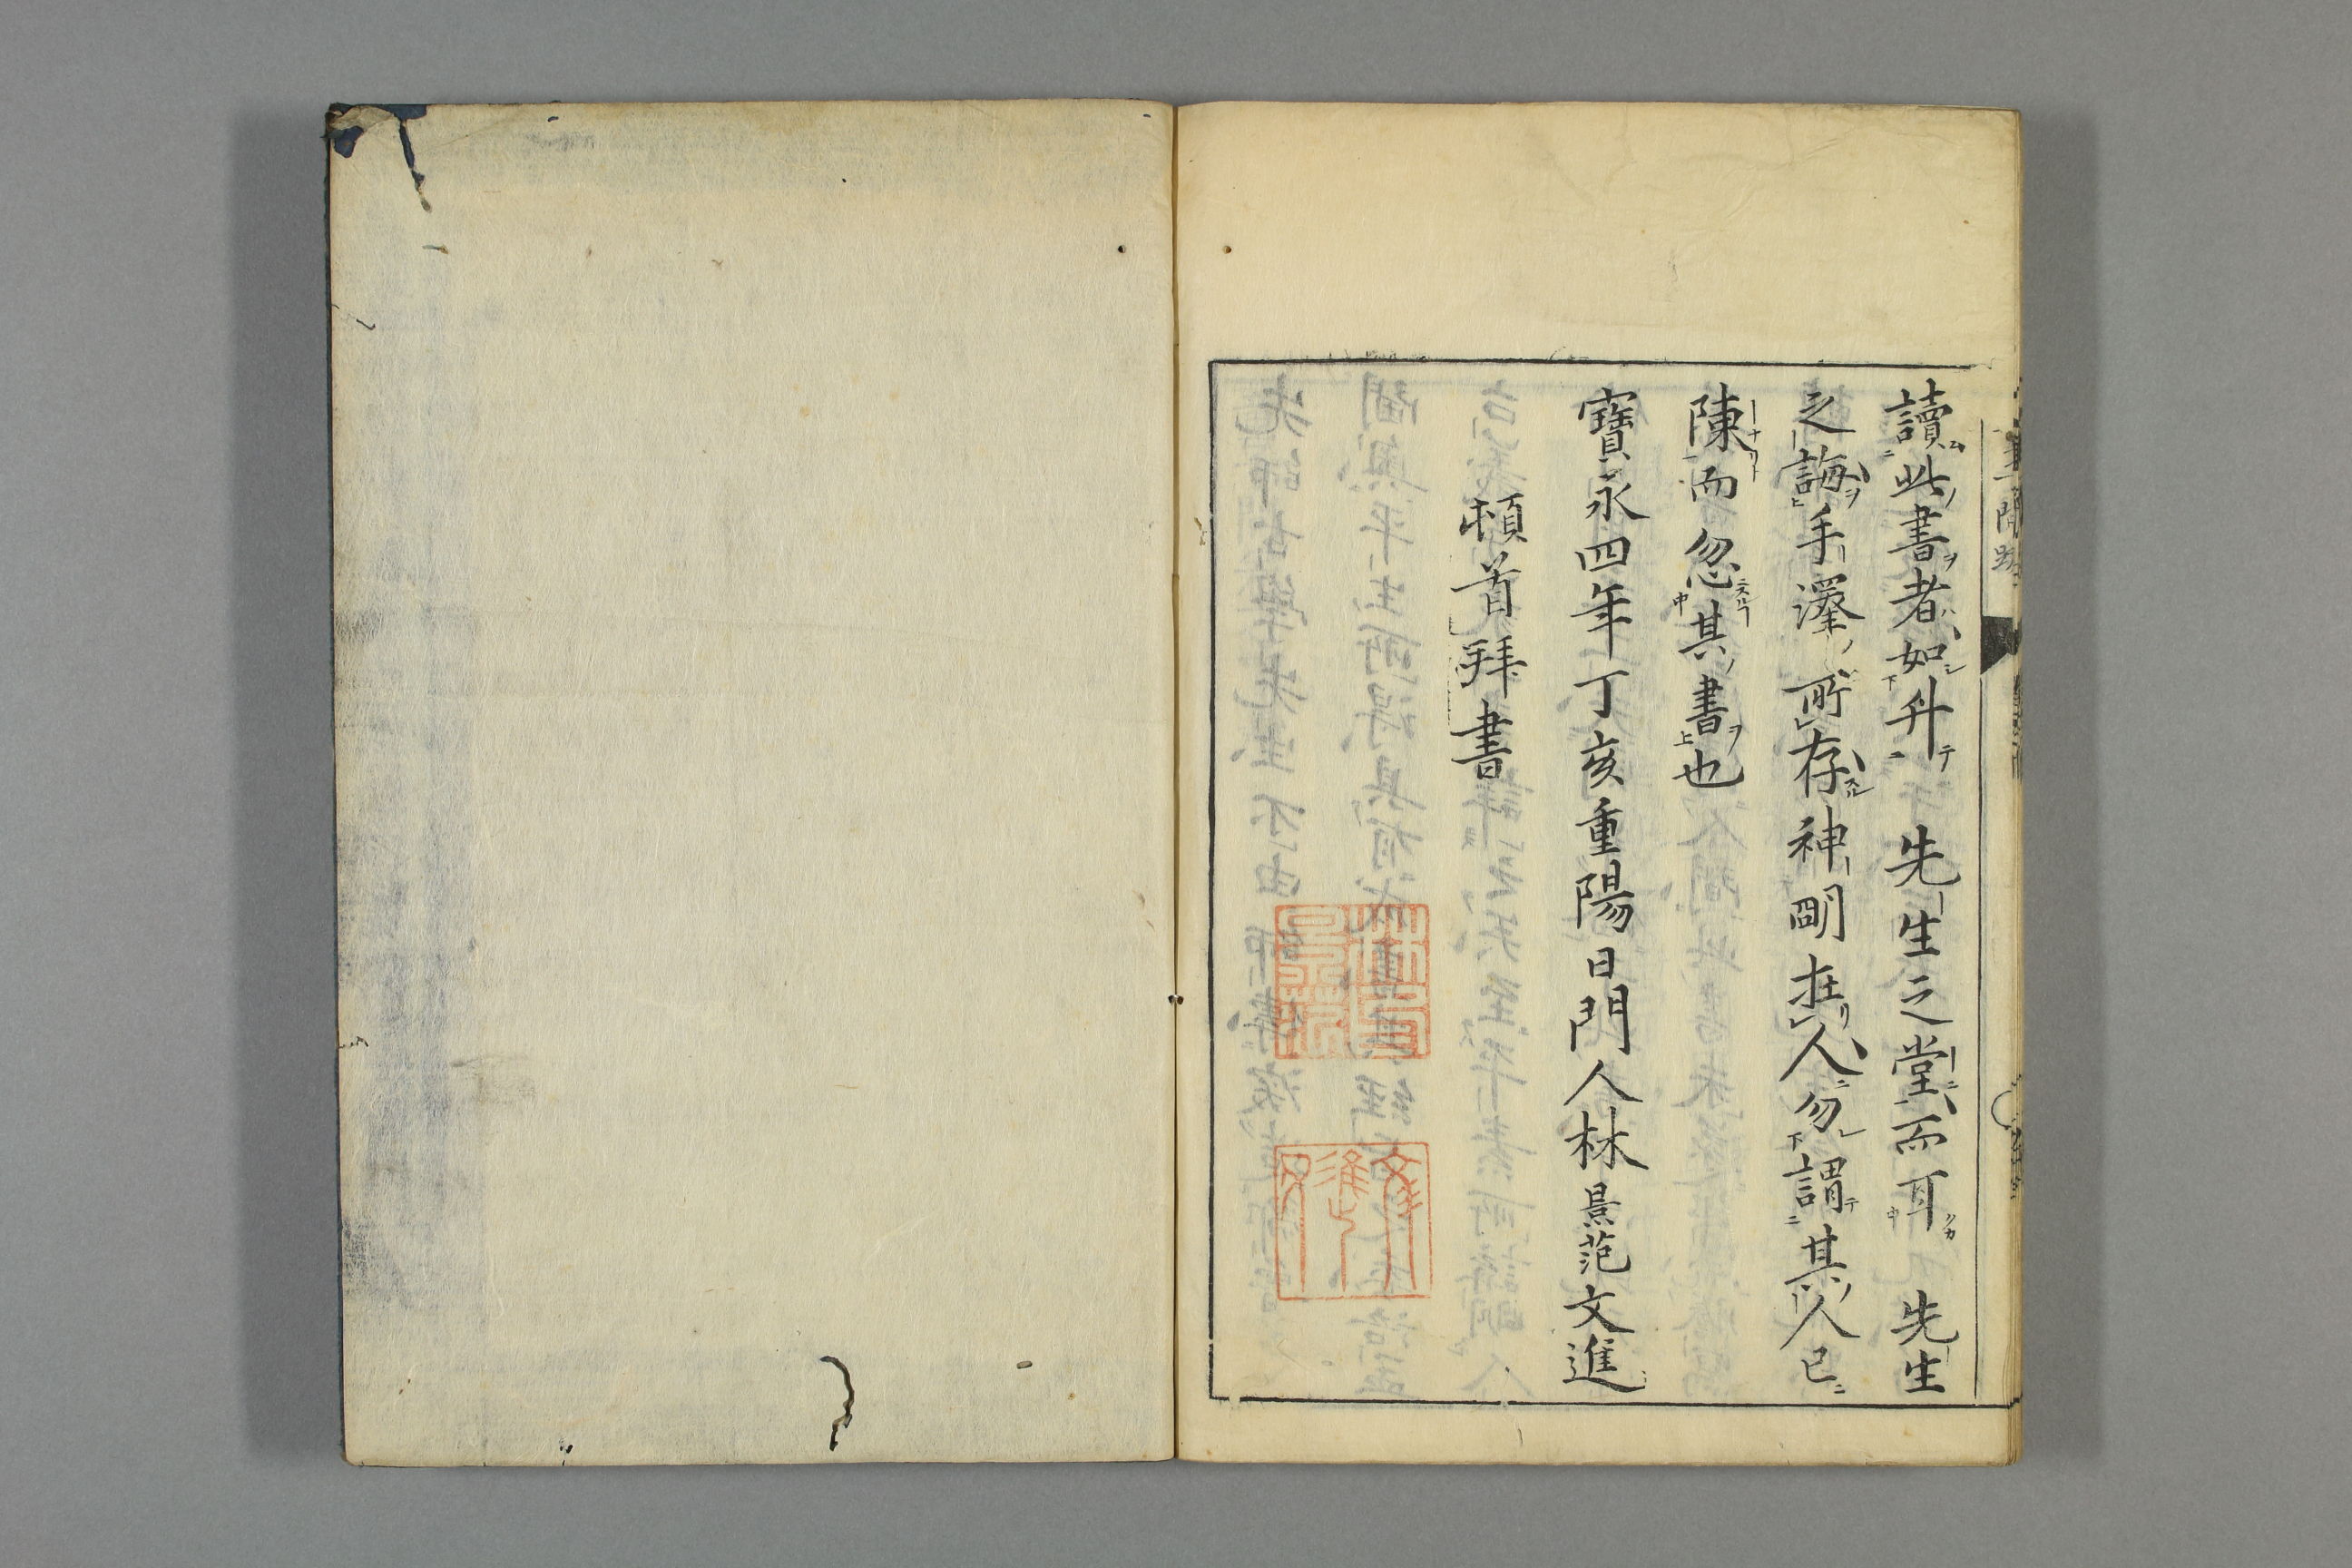 讀此書者如升　先生之堂而耳　先生
之誨手澤所存神明在人勿謂其人已
陳而忽其書也
寶永四年丁亥重陽日門人林景范文進
頓首拜書
林
景范
文進